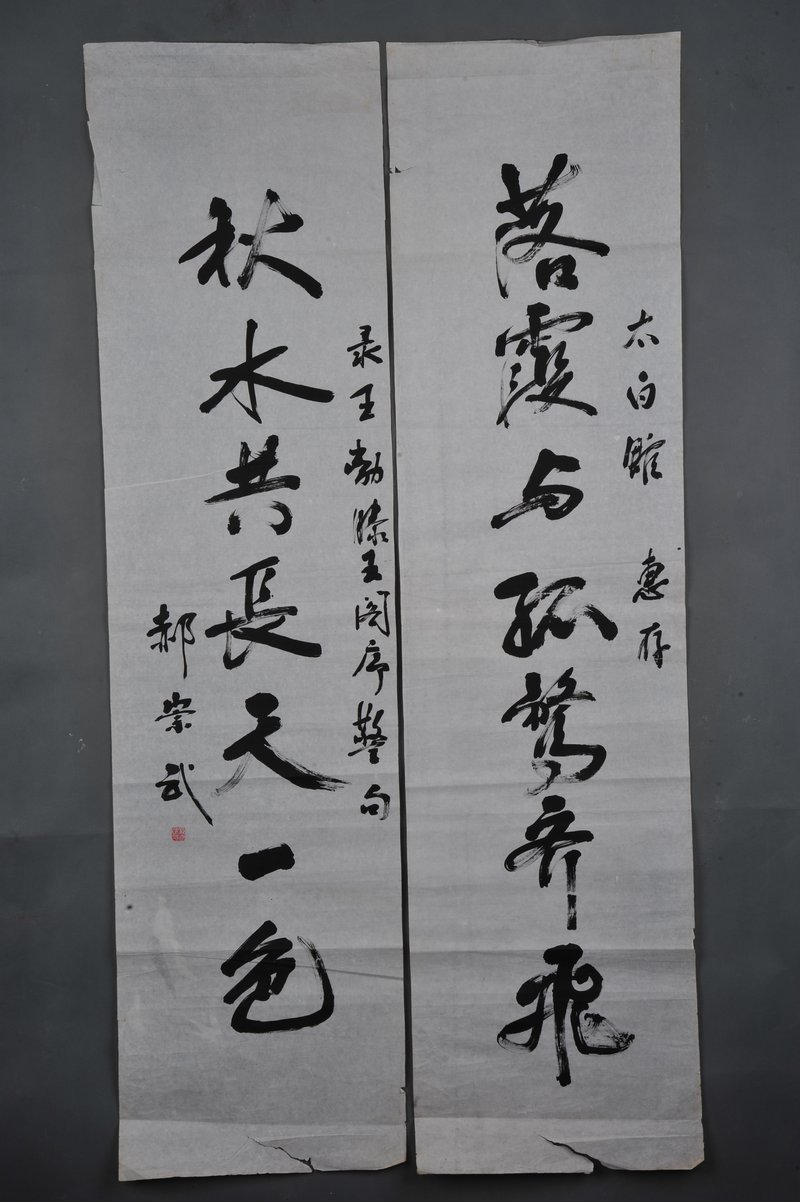 太白馆 惠存
落霞与孤鹜齐飞
录王勃滕王阁序警句
秋水共長天一色
郝崇武